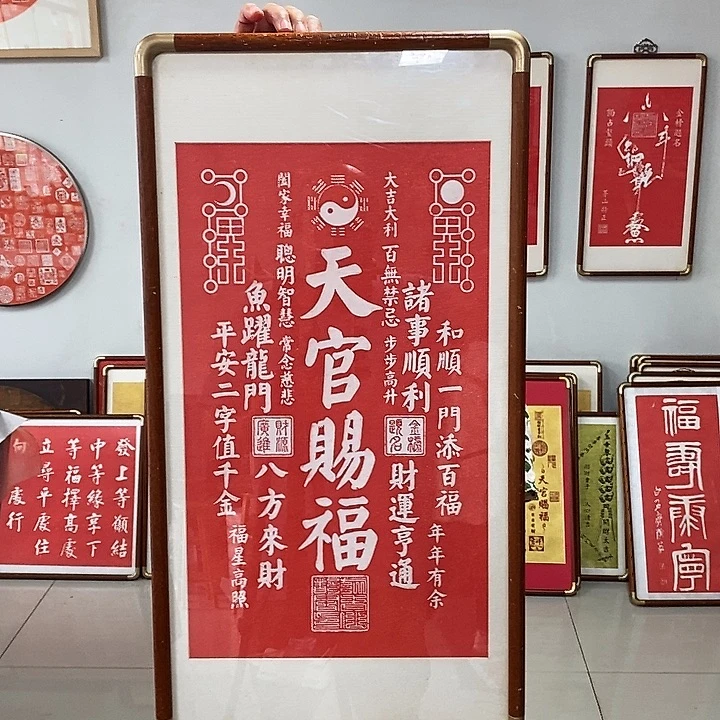 天官賜福
大吉大利 百無禁忌 步步高升
諸事順利
金榜題名
財運亨通
和順一門添百福
年年有余
闔家幸福 聰明智慧 常念慈悲
魚躍龍門
財源廣進
八方來財
平安二字值千金
福星高照
金榜題名
獨占鰲頭
登上等願結
中等緣享下
等福擇高處
立尋平處住
向 處行
天官賜福
福壽康寧